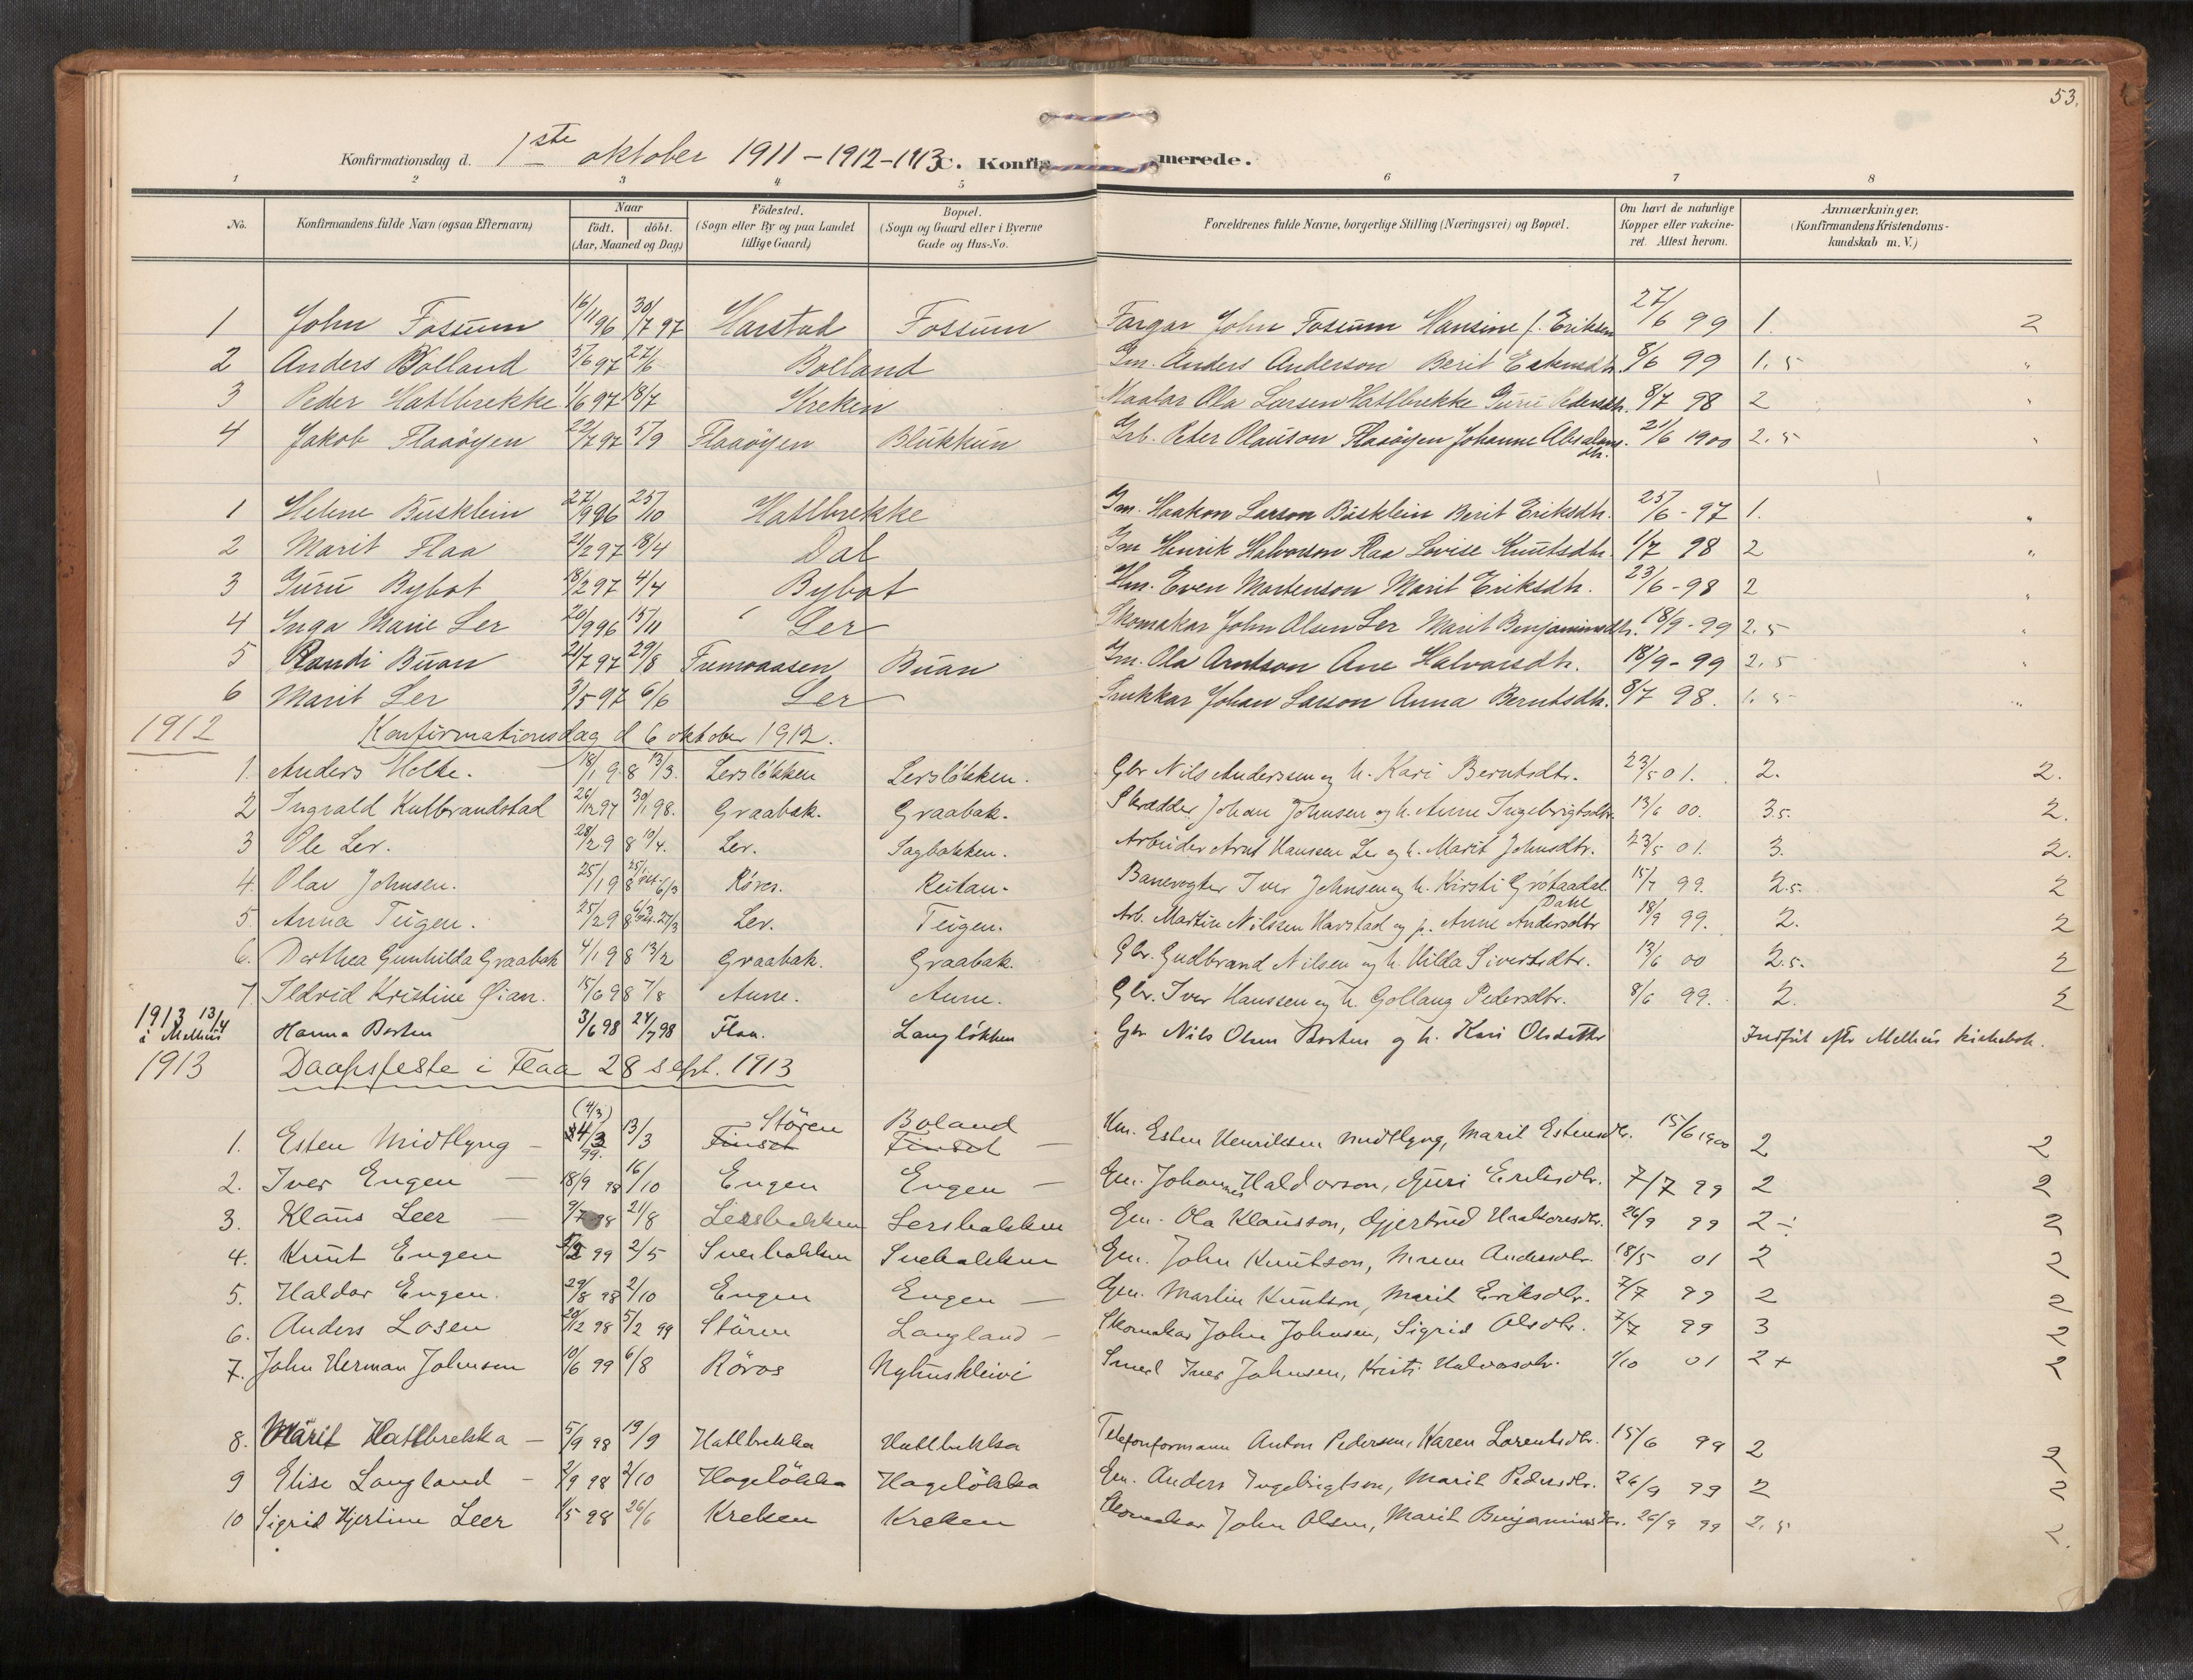 53.
Konfirmationsdag d. 1ste oktober 1911-1912-1913 C. Konfir merede.
1 2 3 4 5 6 7 8
No. Konfirmandens fulde Navn (ogsaa Efternavn) Naar født. døbt. (Aar, Maaned og Dag) Fødested. (Sogn eller By og paa Landet tillige Gaard) Bopæl. (Sogn og Gaard eller i Byerne Gade og Hus-No. Forældrenes fulde Navne, borgerlige Stilling (Næringsvei) og Bopæl. Om havt de naturlige Kopper eller vakcineret. Attest herom. Anmærkninger. (Konfirmandens Kristendomskundskab m. V.)
1 John Fossum 16/11 96 30/7 97 Harstad Fossum Fargar John Fossum Hansine f. Eriksen 27/6 99 1. 2
2 Anders Bolland 5/6 97 27/6 Bolland Gm. Anders Anderson Berit 8/6 99 1.5 "
3 Peder Hatlbrekke 1/6 97 18/7 Kreken Maalar Ola Larsen Hatlbrekke Guru Pedersdtr. 8/7 98 2 "
4 Jakob Flaaöyen 22/7 97 5/9 Flaaöyen Blukkun Grb. Peter Olauson Flaaöyen Johanne Absalonsdtr. 21/6 1900 2.5 "
1 Helene Busklein 27/9 96 25/10 Hatlbrekke Gm. Haakon Larson Busklein Berit Eriksdtr. 25/6 - 97 1. "
2 Marit Flaa 21/2 97 18/4 Dal Gm Henrik Halvorson Flaa Lovise Knutsdtr. 1/7 98 2 "
3 Guru Bybot 18/2 97 4/4 Bybot Hm. Even Mortenson Marit Eriksdtr. 23/6 - 98 2 "
4 Inga Marie Ler 26/9 96 15/11 Ler Skomakar John Olsen Ler Marit Benjaminsdtr. 18/9 - 99 2.5 "
5 Randi Buan 21/7 97 29/8 Buan Gm. Ola Arntson Ane Halvorsdtr. 18/9 - 99 2.5 "
6 Marit Ler 3/5 97 6/6 Ler Johan Larson Anna Berntsdtr. 8/7 98. 1.5 "
1912 Konfirmationsdag d 6 oktober 1912.
1. Anders Holte. 18/1 98 13/3. Lersløkken Lersløkken. Gbr Nils Anderssen og h. Kari Berntsdtr. 23/5 01. 2. 2.
2 Ingvald Kulbrandstad 26/12 97 30/1 98. Graabak. Graabak. Skrædder Johan Johnsen og h. Anne Ingebrigtsdtr. 13/6 00. 3.5. 2.
3 Ole Ler. 28/2 98 10/4. Ler. Sagbakken. Arbeider Arnt Hanssen Ler og h. Marit Johnsdtr. 23/5 01. 3. 2.
4. Olav Johnsen. 25/1 98 6/3 Røros. Reitan. Banevogter Iver Johnsen og h. Kirsti Grötaadal 15/7 99. 2.5. 2
5 Anna Teigen. 25/2 98 27/3 Ler. Teigen. Arb. Martin Nilssen Harstad og p. Anne Andersdtr Dahl 18/9 99. 2. 2
6. Dorthea Gunhilda Graabak 4/1 98 13/2 Graabak. Graabak. Gbr. Gudbrand Nilsen og h. Hilda Sivertsdtr. 13/6 00 2.5. 2
7. Ildrid Kristine Øian. 15/6 98 7/8 Aune. Aune. Gbr. Iver Hanssen og h. Gollaug Pedersdtr. 8/6 99. 2. 2
1913 13/4 i Melhus Hanna Borten 3/6 98 24/7 98 Flaa. Langløkken Gbr Nils Olsen Borten og h. Kari Olsdatter Indført efter Melhus kirkebok.
1913 Daapsfeste i Flaa 28 sept. 1913
1. Esten Midtlyng - (4/3) 24/3 99. 13/3 Stören Finset Boland Finset - Hm. Esten Henriksen Midtlyng, Marit Estensdtr. 15/6 1900 2 2
2. Iver Engen - 18/9 98 16/10 Engen Engen - Gm. Johannes Haldorson, Guri Eriksdtr. 7/7 99 2 2
3. Klaus Leer - 9/7 98 21/8 Lersbakken Lersbakken Gm. Ola Klausson, Gjertrud Haakonsdtr. 26/9 99 2 ÷ 2
4. Knut Engen 99 2/5 Svebakken Gm. John Knutson, Maren Andersdtr. 18/5 01 2 2
5. Haldor Engen. 29/8 98 2/10 Engen Engen - Gm. Martin Knutson, Marit Eriksdtr. 7/7 99 2 2
6. Anders Losen 20/12 98 5/2 99 Stören Langland - Skomakar John Johnsen, Sigrid Olsdtr. 7/7 99 3 2
7. John Herman Johnsen 10/6 99 6/8 Röros Nyhuskleivi Smed Iver Johnsen, Kirsti Halvorsdtr. 1/10 01 2 + 2
8. Marit Hatlbrekka - 5/9 98 19/9 Hatlbrekka Hatlbrekka Telefonformann Anton Pedersen, Karen Lorentsdtr. 15/6 99 2 2
9 Elise Langland - 2/9 98 2/10 Hagelökka Hagelökka Gm. Anders Ingebrigtson, Marit Pedersdtr. 26/9 99 2 2
10 Sigrid Hjertine Leer 1/5 98 26/6 Kreken Kreken Skomakar John Olsen, Marit Benjaminsdtr. 26/9 99 2.5 2.